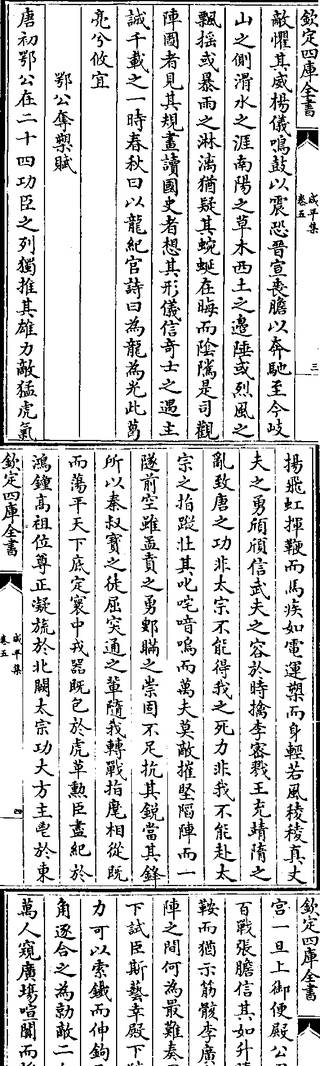 欽定四庫全書
咸平集
卷五
三
敵懼其威楊儀鳴鼓以震恐晉宣喪膽以奔馳至今岐
山之側渭水之涯南陽之草木西土之邊陲或烈風之
飄揺或暴雨之淋漓猶疑其蜿蜒在晦而隂隲是司觀
陣圖者見其規畫讀國史者想其形儀信竒士之遇主
誠千載之一時春秋曰以龍紀官詩曰為龍為光此萬
亮兮攸宜
鄂公奪槊賦
唐初鄂公在二十四功臣之列獨推其雄力敵猛虎氣
揚飛虹揮鞭而馬疾如電運槊而身輕若風稜稜真丈
夫之勇頎頎信武夫之容於時擒李密戮王充靖隋之
亂致唐之功非太宗不能得我之死力非我不能赴太
宗之指蹤壯其叱咤喑嗚而萬夫莫敵摧堅陷陣而一
隊前空雖孟賁之勇鄋瞞之崇固不足抗其鋭當其鋒
所以秦叔寳之徒屈突通之輩隨我轉戰指麾相從既
而蕩平天下底定寰中戎器既包於虎革勲臣盡紀於
鴻鐘高祖位尊正凝旒於北闕太宗功大方主鬯於東
欽定四庫全書
咸平集
卷五
四
欽定四庫全書
宫一旦上御便殿公
百戰張膽信其如升
鞍而猶示筋骸李廣
陣之間何為最難奏
下試臣斯藝幸殿下
力可以索鐵而伸鉤
角逐合之為勍敵二
萬人窺廣塲喧闐而